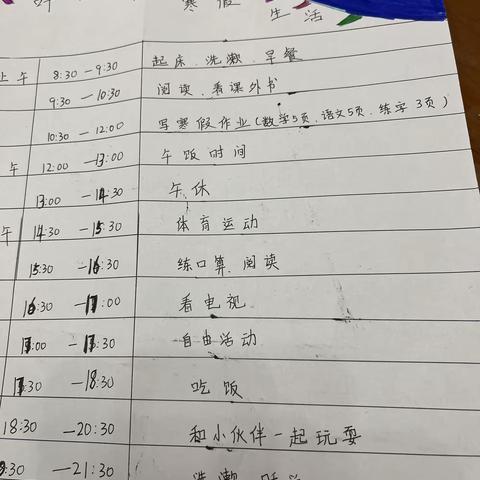 寒假
生活
上午 8:30 — 9:30 起床、洗漱、早餐
9:30 — 10:30 阅读、看课外书
10:30 — 12:00 写寒假作业(数学5页、语文5页、练字3页)
午 12:00 — 13:00 午饭时间
13:00 — 14:30 午休
午 14:30 — 15:30 体育运动
15:30 — 16:30 练口算、阅读
16:30 — 17:00 看电视
17:00 — 17:30 自由活动
17:30 — 18:30 吃饭
18:30 — 20:30 和小伙伴一起玩耍
:30 — 21:30 洗漱